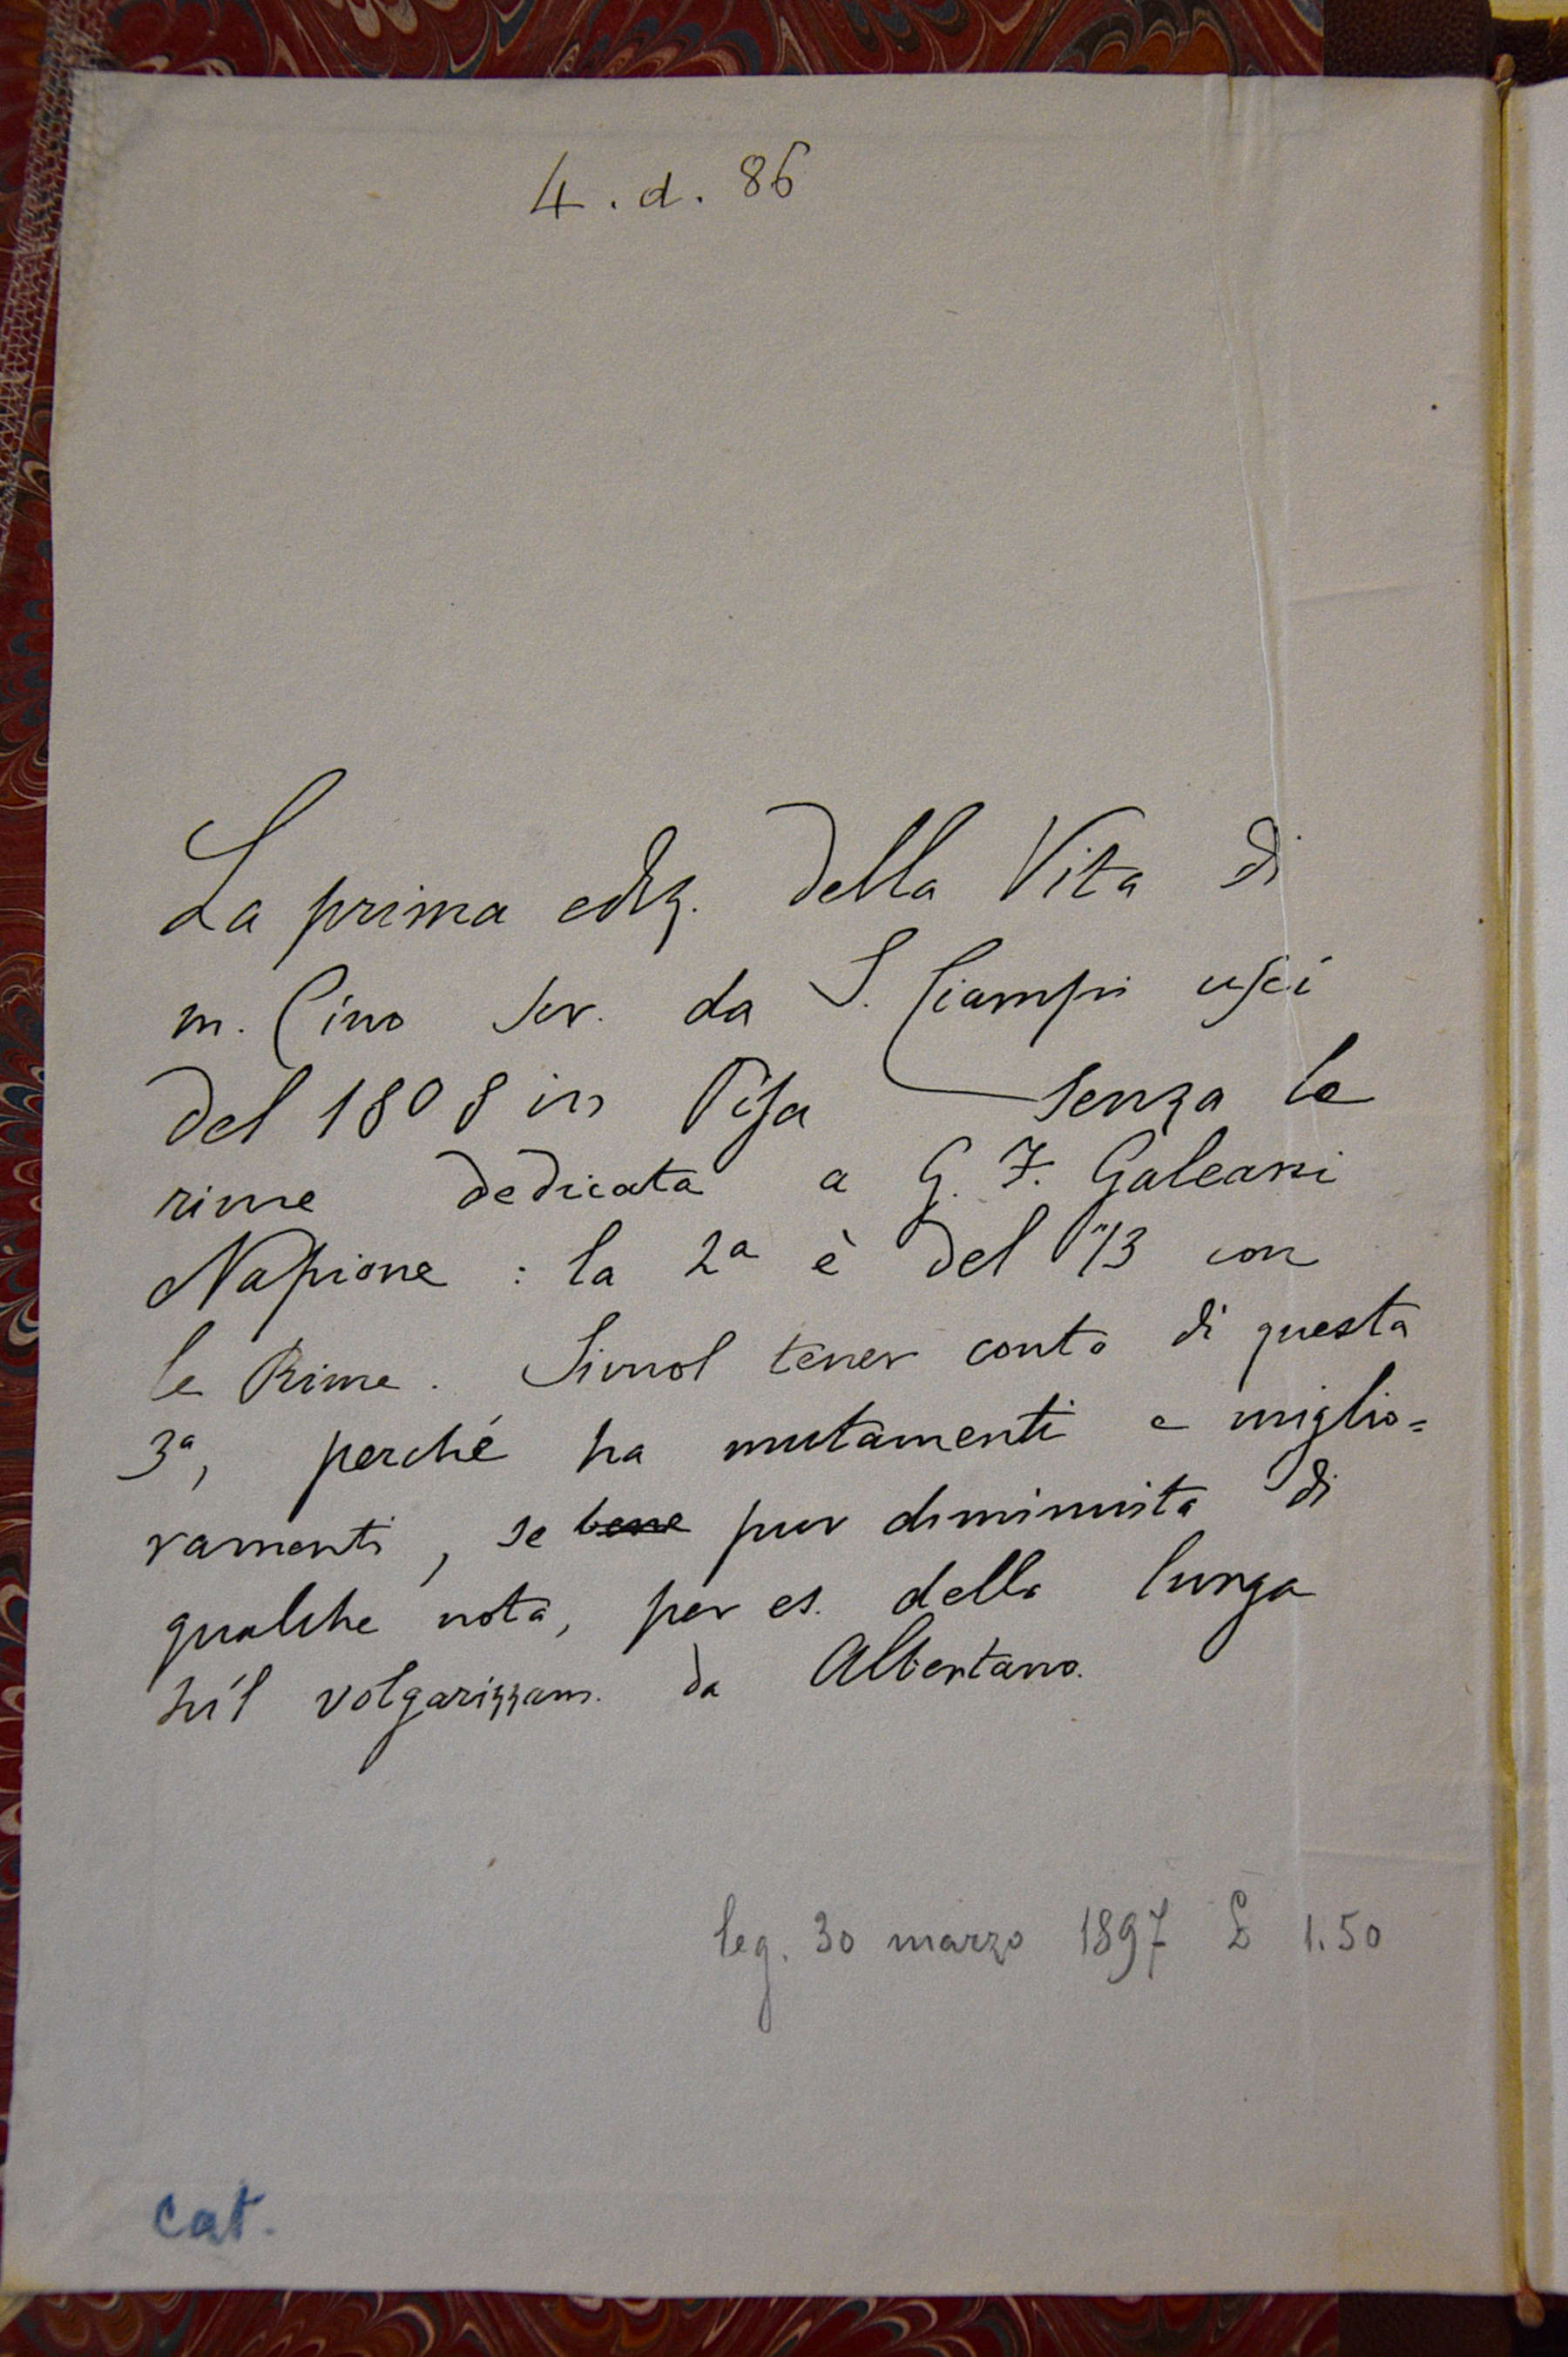 4. d. 86
La prima ediz. della Vita di
m. Cino scr. da S. Ciampi uscì
del 1808 in Pisa senza le
rime dedicata a G. F. Galeani
Napione : la 2ª è del '13 con
le Rime. Si vuol tener conto di questa
3ª, perché ha mutamenti e miglio=
ramenti, se bene pur diminuita di
qualche nota, per es. della lunga
su'l volgarizzam. da Albertano.
leg. 30 marzo 1897 £ 1.50
cat.